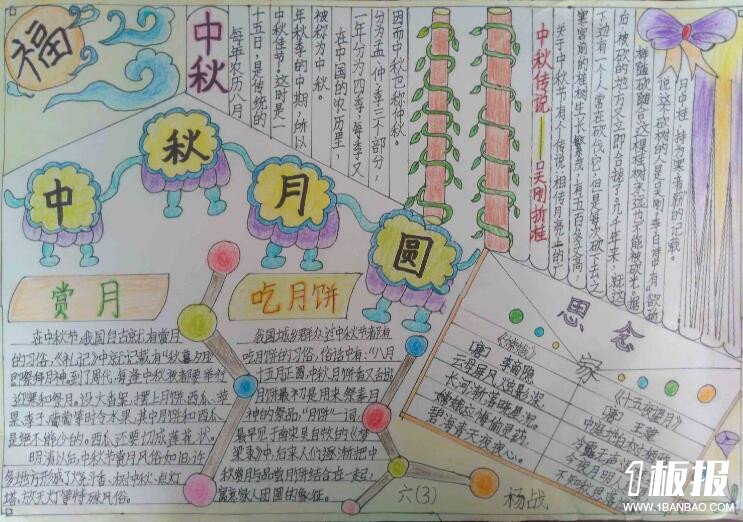 福
中秋
每年农历八月
十五日，是传统的
中秋佳节。这时是一
年秋季的中期，所以
被称为中秋。
在中国的农历里，
一年分为四季，每季又
分为孟、仲、季三个部分，
因而中秋也称仲秋。
中秋传说——吴刚折桂
关于中秋节有个传说：相传月亮上的广
寒宫前的桂树生长繁茂，有五百多丈高，
下边有一个人常在砍伐它，但是每次砍下去之
后，被砍的地方又立即合拢了。几千年来，就这
样随砍随合，这棵桂树永远也不能被砍光。据
说这个砍树的人是吴刚，李白诗中有“欲斫
月中桂，持为寒者薪”的记载。
中秋月圆
赏月
在中秋节，我国自古就有赏月
的习俗，《礼记》中就记载有“秋暮夕月”，
即祭拜月神。到了周代，每逢中秋夜都要举行
迎寒和祭月。设大香案，摆上月饼、西瓜、苹
果、李子、葡萄等时令水果，其中月饼和西瓜
是绝不能少的。西瓜还要切成莲花状。
明清以后，中秋节赏月风俗如旧，许
多地方形成了烧斗香、树中秋、点灯
塔、放天灯等特殊风俗。
吃月饼
我国城乡群众过中秋节都有
吃月饼的习俗，俗话中有：“八月
十五月正圆，中秋月饼香又甜”。
月饼最初是用来祭奉月
神的祭品，“月饼”一词，
最早见于南宋吴自牧的《梦
粱录》中，后来人们逐渐把中
秋赏月与品尝月饼结合在一起，
寓意家人团圆的象征。
思念家
《嫦娥》
[唐] 李商隐
云母屏风烛影深，
长河渐落晓星沉。
嫦娥应悔偷灵药，
碧海青天夜夜心。
《十五夜望月》
[唐] 王建
中庭地白树栖鸦，
冷露无声
今夜月明人
不知秋思落
六(3)
杨战
1板报
WWW.1BANBAO.COM